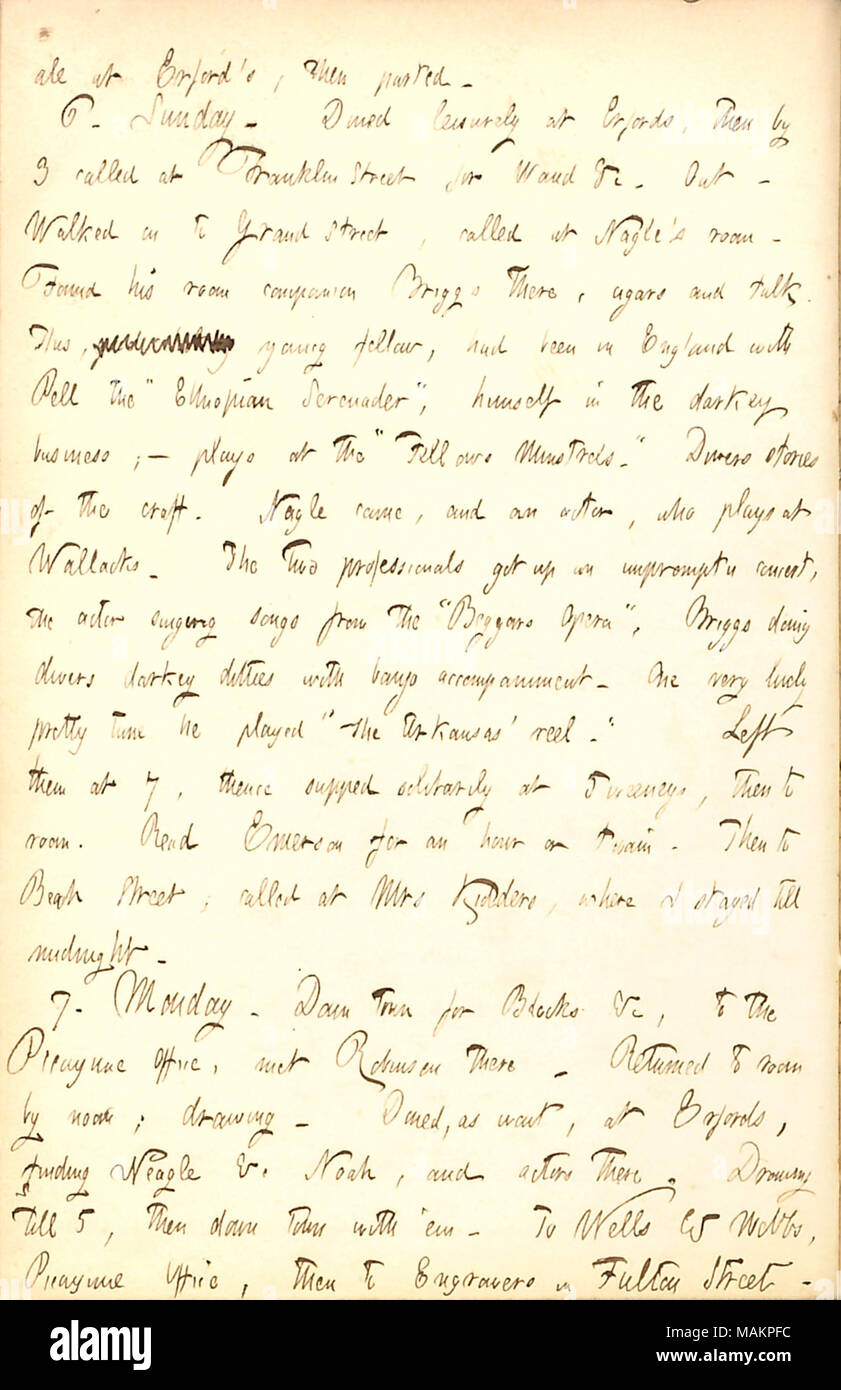 ale at Erford's, then parted_
6_ Sunday_ Dined leisurely at Erfords, then by
3 called at Franklin Street for Waud &c_ Out_
Walked on to Grand Street, called at Nagle's room_
Found his room companion Briggs there, cigars and talk.
This, young fellow, had been in England with
Pell the "Ethiopian Serenader", himself in the darkey
business;— plays at the "Fellows Minstrels_" Divers stories
of the craft. Nagle came, and an actor, who plays at
Wallacks_ The two professionals got up an impromptu concert,
the actor singing songs from the "Beggars Opera", Briggs doing
divers darkey ditties with banjo accompaniment_ One very lively
pretty tune he played "the Arkansas' reel_" Left
them at 7, thence supped solitarily at Sweeneys, then to
room. Read Emerson for an hour or twain_ Then to
Beach Street, called at Mrs Kidders, where I stayed till
midnight_
7_ Monday_ Down town for Blocks &c, to the
Picayune Office, met Robinson there_ Returned to room
by noon; drawing_ Dined, as wont, at Erfords,
finding Neagle & Noah, and actors there. Drawing
till 5, then down town with 'em_ To Wells & Webbs,
Picayune Office, then to Engravers in Fulton Street_
alamy
Image ID: MAKPFC
www.alamy.com